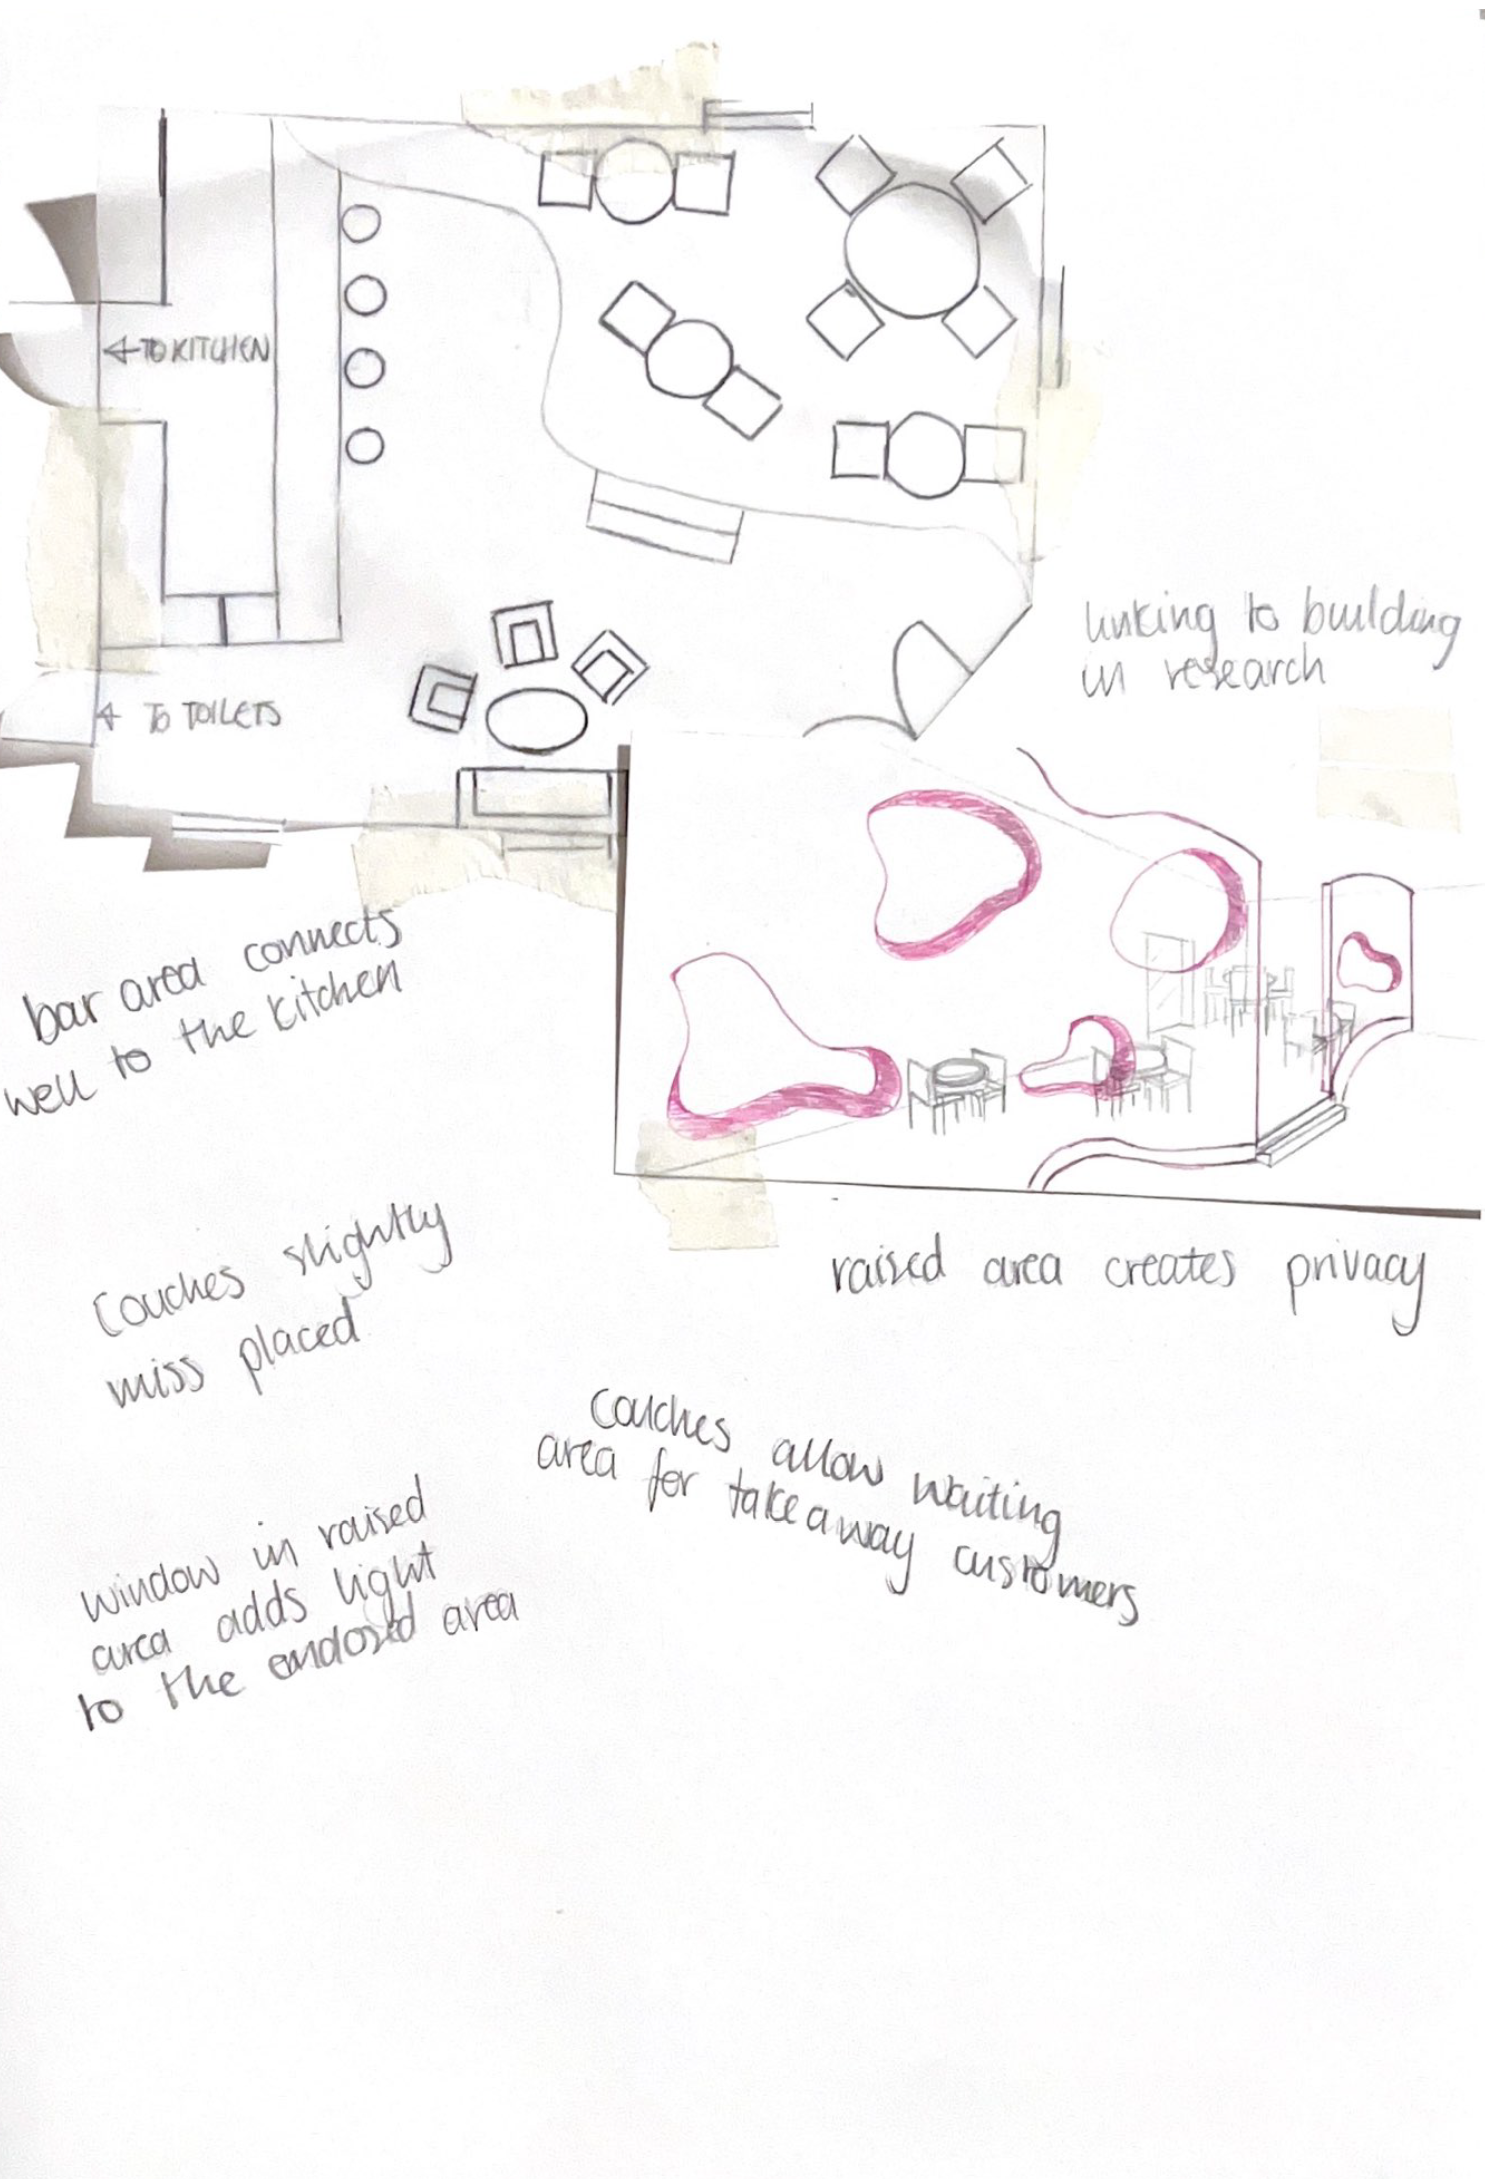 ←TO KITCHEN
← TO TOILETS
linking to building
in research
bar area connects
well to the kitchen
raised area creates privacy
Couches slightly
miss placed
Couches allow waiting
area for takeaway customers
window in raised
area adds light
to the enclosed area